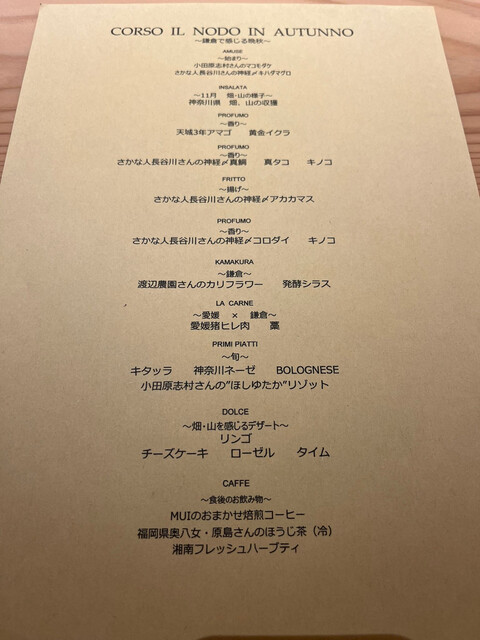 CORSO IL NODO IN AUTUNNO
～鎌倉で感じる晩秋～
AMUSE
～始まり～
小田原志村さんのマコモダケ
さかな人長谷川さんの神経〆キハダマグロ
INSALATA
～11月　畑・山の様子～
神奈川県　畑、山の収穫
PROFUMO
～香り～
天城3年アマゴ　黄金イクラ
PROFUMO
～香り～
さかな人長谷川さんの神経〆真鯛　真タコ　キノコ
FRITTO
～揚げ～
さかな人長谷川さんの神経〆アカカマス
PROFUMO
～香り～
さかな人長谷川さんの神経〆コロダイ　キノコ
KAMAKURA
～鎌倉～
渡辺農園さんのカリフラワー　発酵シラス
LA CARNE
～愛媛　×　鎌倉～
愛媛猪ヒレ肉　藁
PRIMI PIATTI
～旬～
キタッラ　神奈川ネーゼ　BOLOGNESE
小田原志村さんの"ほしゆたか"リゾット
DOLCE
～畑・山を感じるデザート～
リンゴ
チーズケーキ　ローゼル　タイム
CAFFE
～食後のお飲み物～
MUIのおまかせ焙煎コーヒー
福岡県奥八女・原島さんのほうじ茶（冷）
湘南フレッシュハーブティ